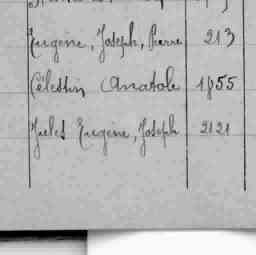 Eugène, Joseph, Pierre 213
Célestin Anatole 1855
Jules Eugène, Joseph 2121